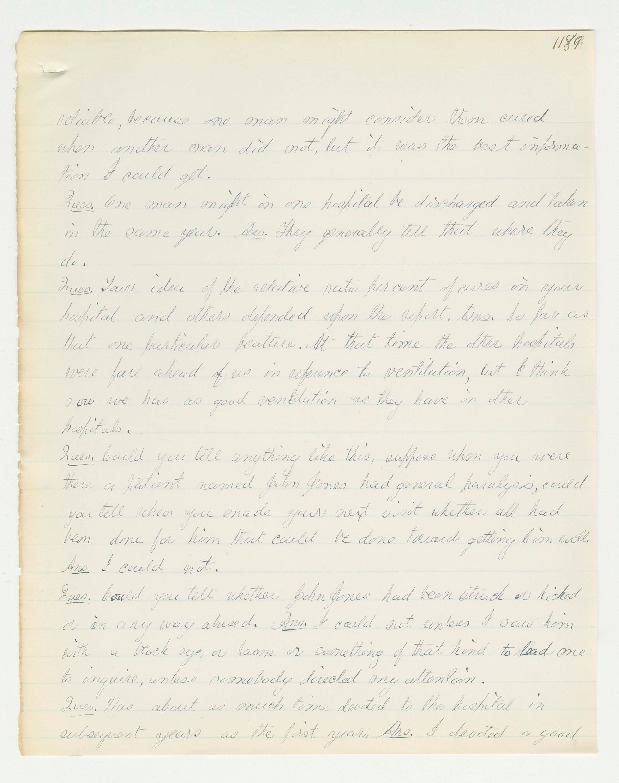 1189.
reliable, because one man might consider them cured
when another man did not, but it was the best informa-
tion I could get.
Ques. One man might in one hospital be discharged and taken
in the same year. Ans. They generally tell that where they
do.
Ques. Your idea of the relative rate per cent of cures in your
hospital and others depended upon the report. Ans. So far as
that one particular feature. At that time the other hospitals
were far ahead of us in reference to ventilation, but I think
now we have as good ventilation as they have in other
hospitals.
Ques. Could you tell anything like this, suppose when you were
there a patient named John Jones had general paralysis, could
you tell when you made your next visit whether all had
been done for him that could be done towards getting him well.
Ans I could not.
Ques. Could you tell whether John Jones had been struck or kicked
or in any way abused. Ans. I could not unless I saw him
with a black eye or lame or something of that kind to lead me
to inquire, unless somebody directed my attention.
Ques. Was about as much time devoted to the hospital in
subsequent years as the first year. Ans. I devoted a good